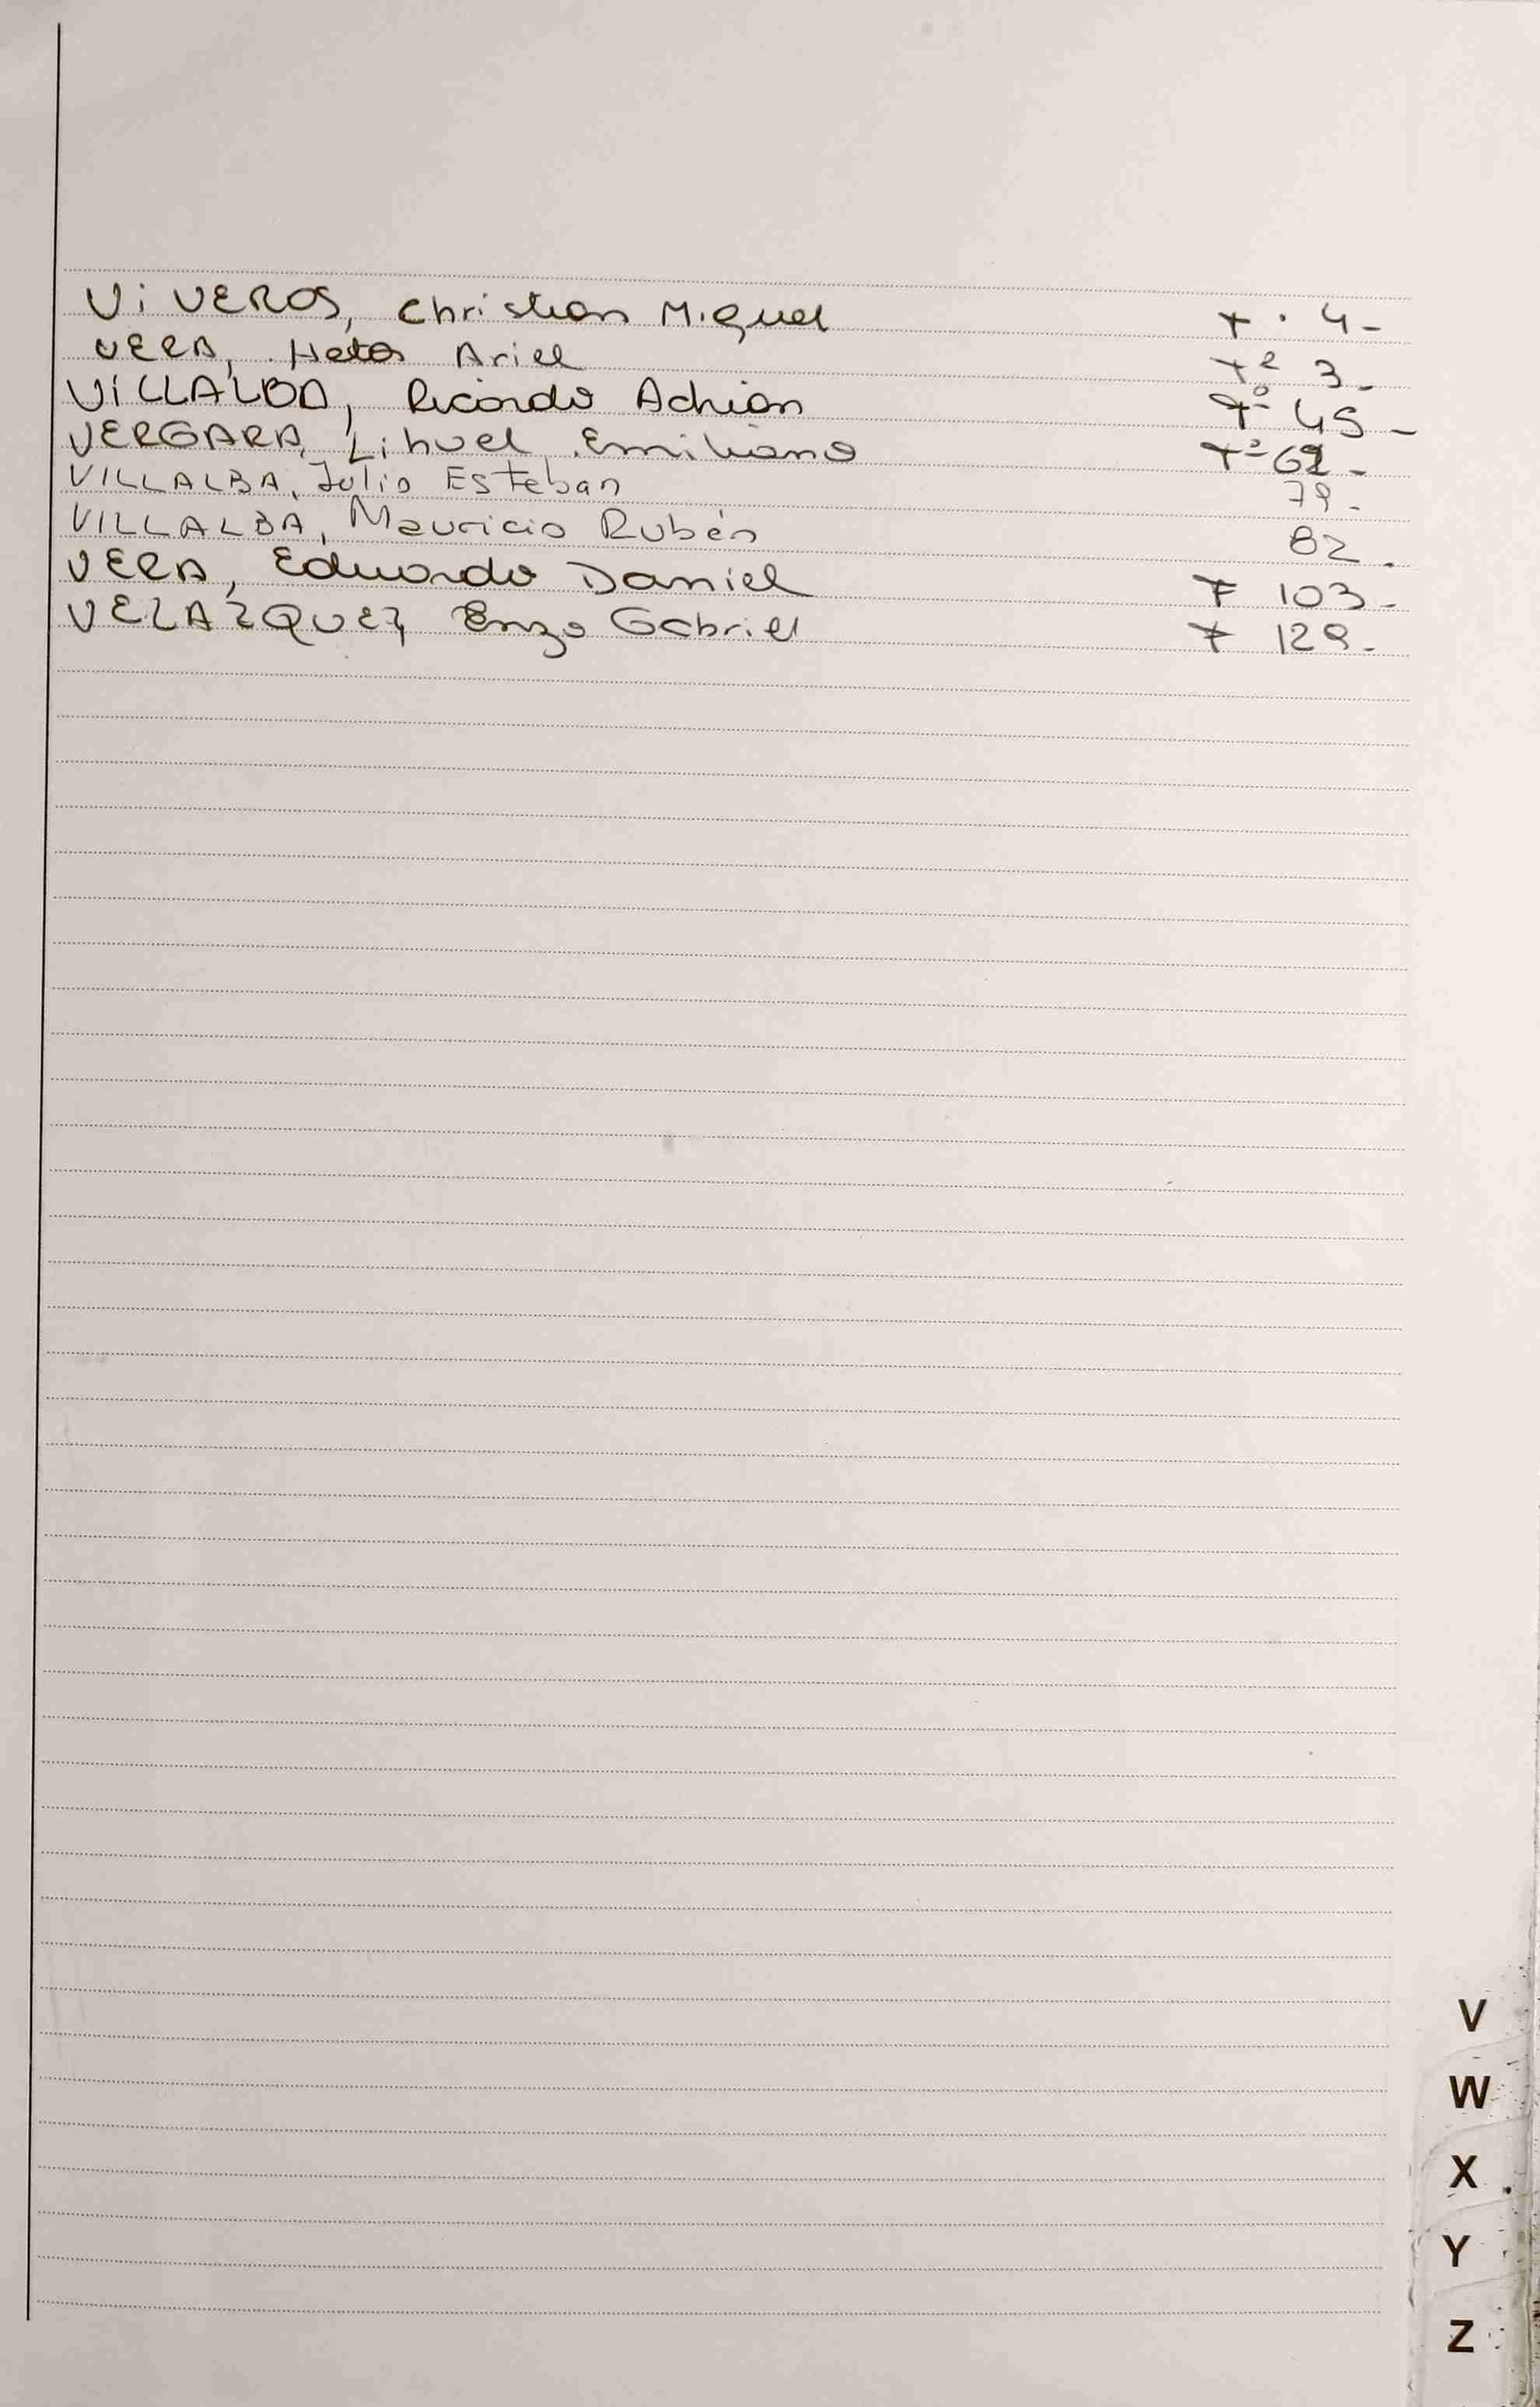 ViVEROS, Christian Miguel F. 4-
VERA, Hector Ariel Fº 3-
ViLLALBA, Ricardo Adrian Fº 45-
VERGARA, Lihuel Emiliano Fº 62-
VILLALBA, Julio Esteban 79-
VILLALBA, Mauricio Rubén 82.
VERA, Eduardo Daniel F 103-
VELAZQUEZ, Enzo Gabriel F 129-
V
W
X
Y
Z